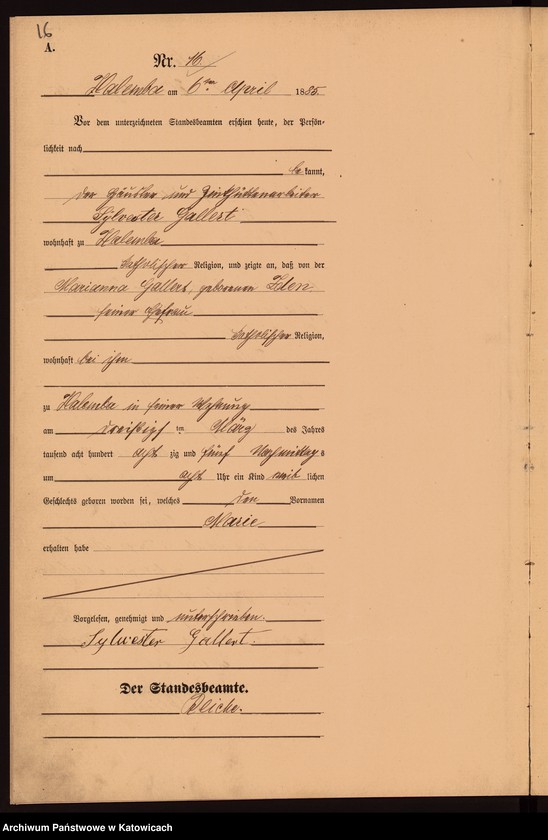 16
A.
Nr. 16
Halemba am 6ten April 1885
Vor dem unterzeichneten Standesbeamten erschien heute, der Persön-
lichkeit nach
be kannt,
der Häusler und Zinkhüttenarbeiter
Sylvester Gallert
wohnhaft zu Halemba
katholischer Religion, und zeigte an, daß von der
Marianna Gallert, geborenen
seiner Ehefrau
katholischer Religion,
wohnhaft bei ihm
zu Halemba in seiner Wohnung
am dreißigsten März des Jahres
tausend acht hundert acht zig und fünf Nachmittag s
um acht Uhr ein Kind weib lichen
Geschlechts geboren worden sei, welches den Vornamen
Marie
erhalten habe
Vorgelesen, genehmigt und unterschrieben.
Sylwester Gallert.
Der Standesbeamte.
Archiwum Państwowe w Katowicach